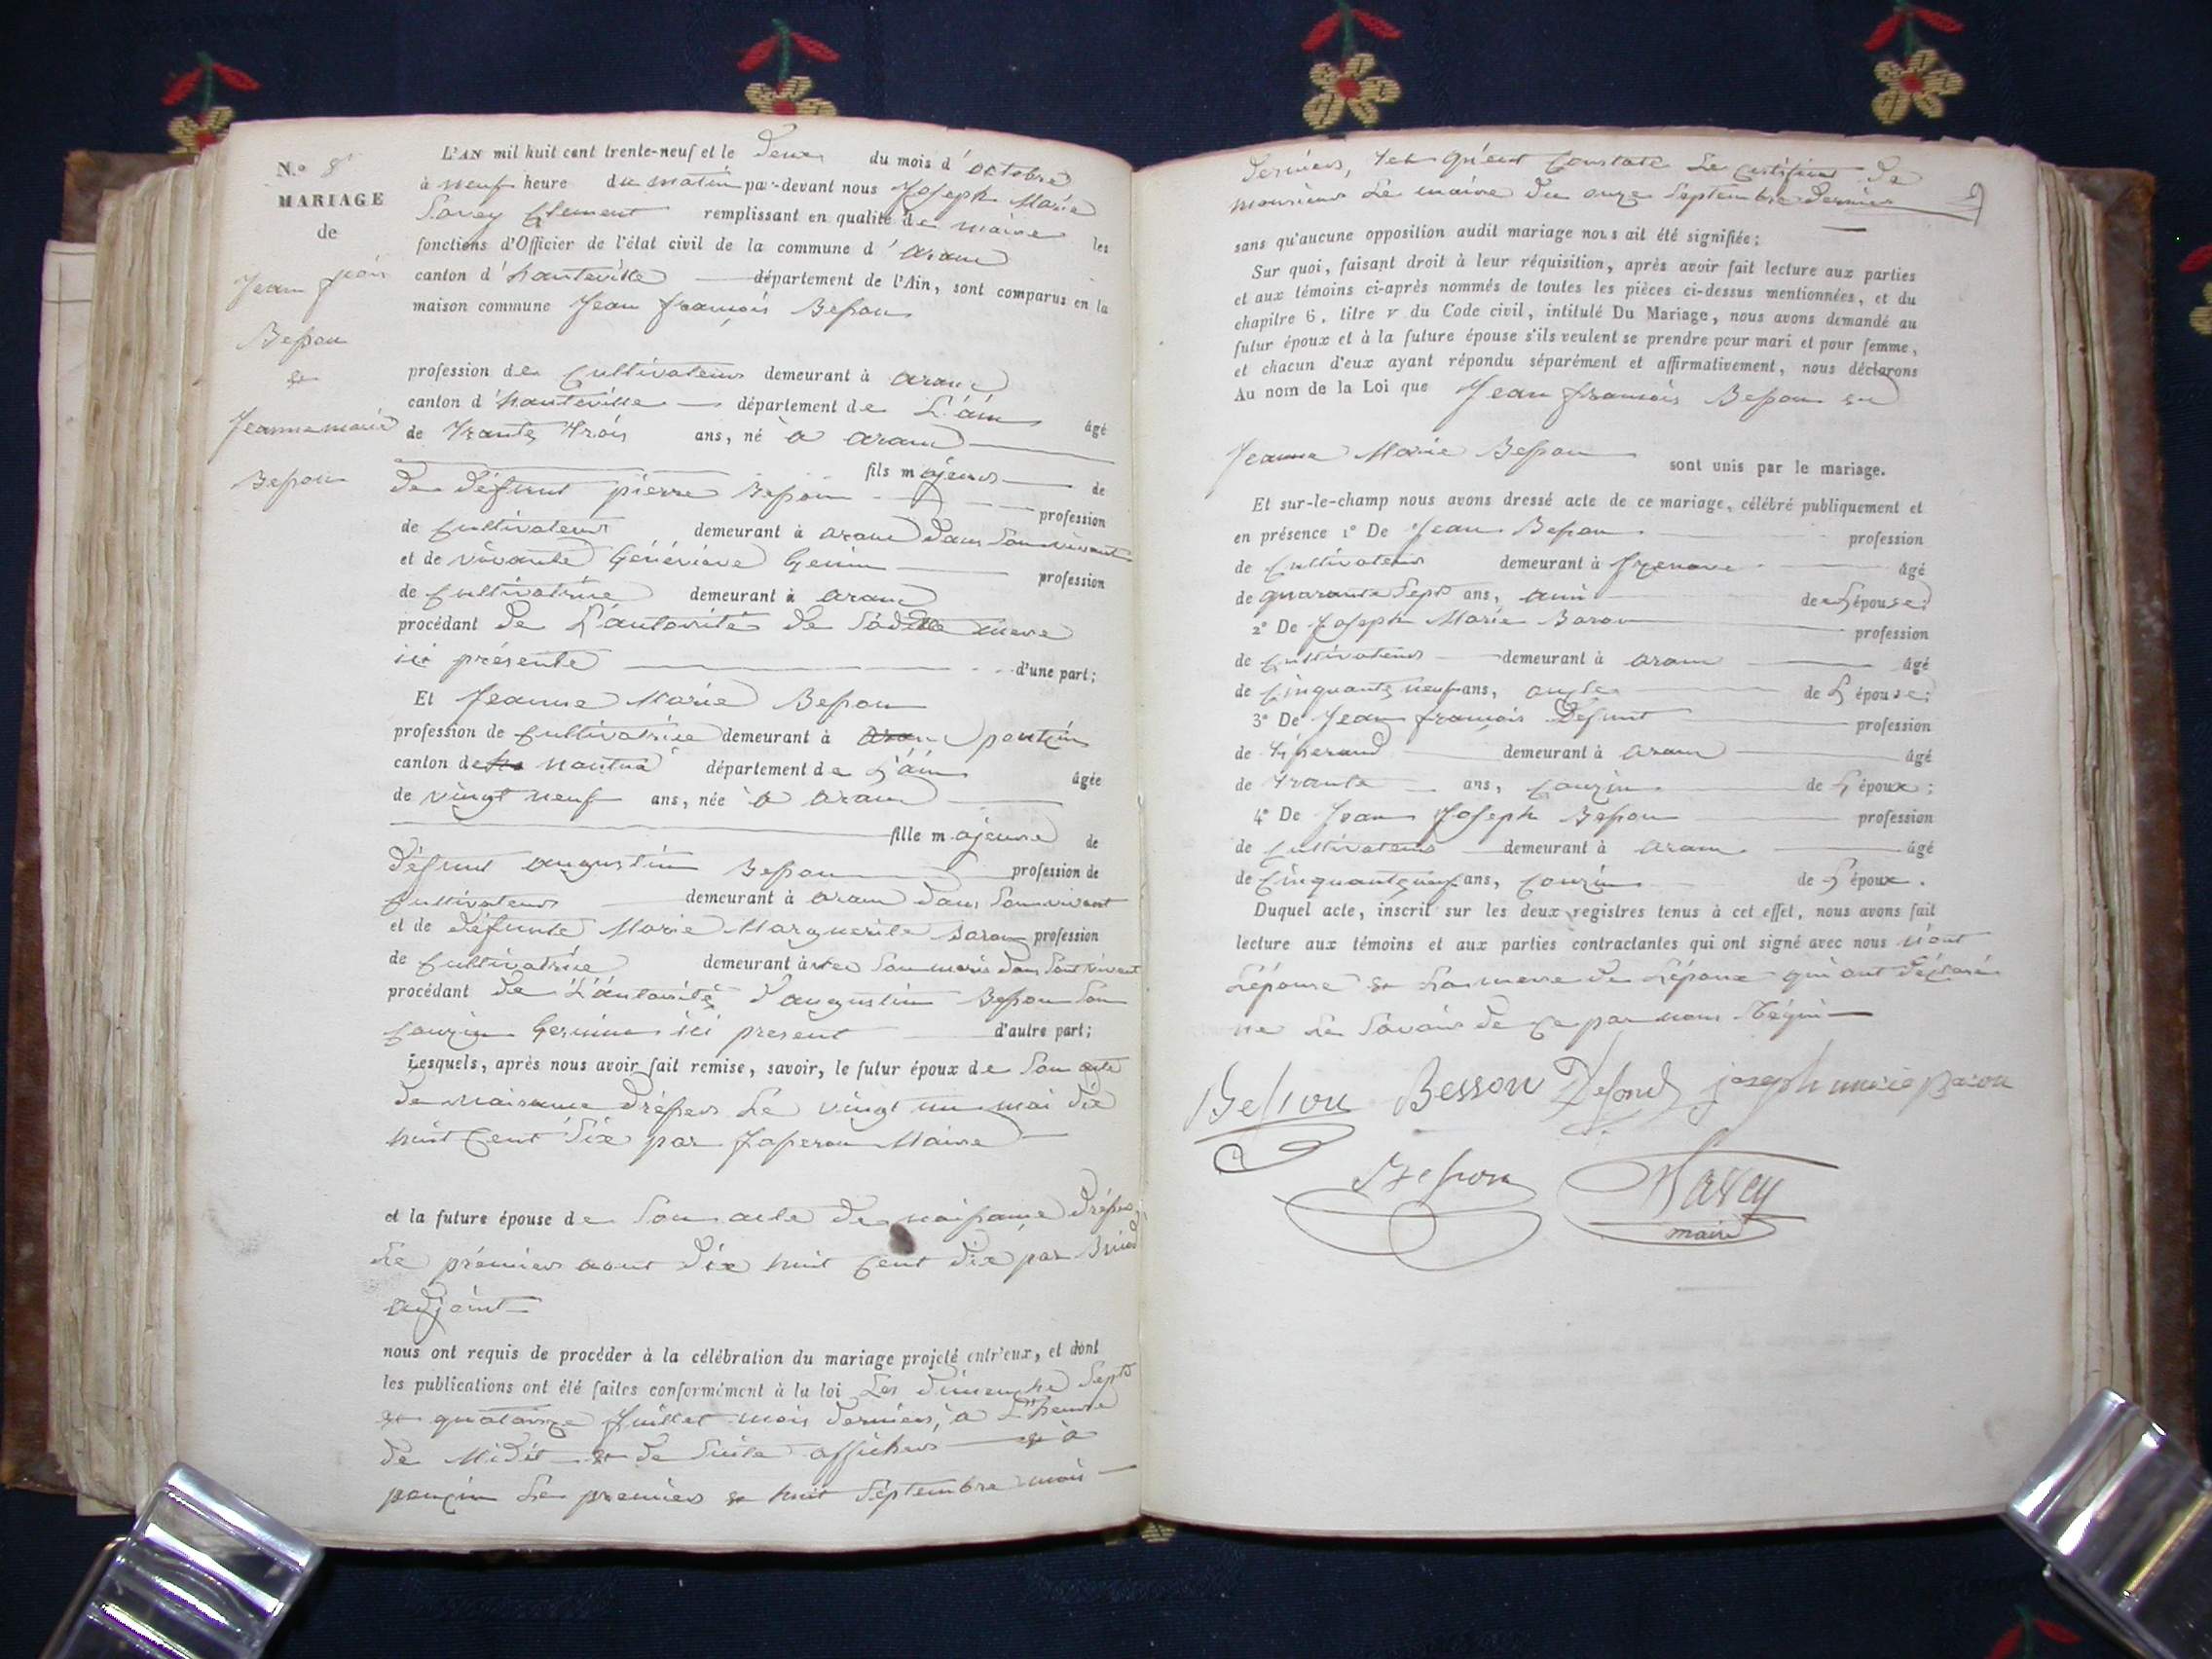 N.º 8
MARIAGE
de
Jean frois
Besson
&
Jeanne marie
Besson
L'AN mil huit cent trente-neuf et le deux du mois d'octobre
à neuf heure du matin par-devant nous Joseph Marie
Savey Clement remplissant en qualité de maire les
fonctions d'Officier de l'état civil de la commune d'aranc
canton d'hauteville département de l'Ain, sont comparus en la
maison commune Jean françois Besson
profession de Cultivateur demeurant à aranc
canton d'hauteville département de L'ain âgé
de trante trois ans, né à aranc
fils majeur de
de défunt pierre Besson profession
de Cultivateur demeurant à aranc dans son vivant
et de vivante Généviève Genin profession
de Cultivatrice demeurant à aranc
procédant de L'autorité de sadite mere
ici présente d'une part;
Et Jeanne Marie Besson
profession de Cultivatrice demeurant à aranc poncin
canton de nantua département de L'ain âgée
de vingt neuf ans, née à aranc
fille majeure de
défunt augustin Besson profession de
Cultivateur demeurant à aranc dans son vivant
et de défunte Marie Marguerite Baron profession
de Cultivatrice demeurant avec son maris dans son vivant
procédant de L'autorité d'augustin Besson son
Couzin Germain ici present d'autre part;
Lesquels, après nous avoir fait remise, savoir, le futur époux de son acte
de naissance dréssés Le vingt un mai dix
huit Cent six par Maire
et la future épouse de son acte de naissance dréssés
Le premier aout dix huit Cent dix par
adjoint
nous ont requis de procéder à la célébration du mariage projeté entr'eux, et dont
les publications ont été faites conformément à la loi Les dimenche sept
& quatorze Juillet mois derniers, à L'heure
de Midit & de suite affichés & à
ponçin Le premier & huit septembre mois
derniers, tel qu'est Constaté Le Certificat de
monsieur Le maire du onze septembre dernier
sans qu'aucune opposition audit mariage nous ait été signifiée;
Sur quoi, faisant droit à leur réquisition, après avoir fait lecture aux parties
et aux témoins ci-après nommés de toutes les pièces ci-dessus mentionnées, et du
chapitre 6, titre v du Code civil, intitulé Du Mariage, nous avons demandé au
futur époux et à la future épouse s'ils veulent se prendre pour mari et pour femme,
et chacun d'eux ayant répondu séparément et affirmativement, nous déclarons
Au nom de la Loi que Jean françois Besson &
Jeanne Marie Besson sont unis par le mariage.
Et sur-le-champ nous avons dressé acte de ce mariage, célébré publiquement et
en présence 1º De Jean Besson profession
de Cultivateur demeurant à âgé
de quarante sept ans, ami de L'épouse;
2º De Joseph Marie Baron profession
de Cultivateur demeurant à aranc âgé
de Cinquante neuf ans, oncle de L'épouse;
3º De Jean françois Defont profession
de tisserand demeurant à aranc âgé
de trante ans, Couzin de L'époux;
4º De Jean Joseph Besson profession
de Cultivateur demeurant à aranc âgé
de Cinquante ans, Couzin de L'époux.
Duquel acte, inscrit sur les deux registres tenus à cet effet, nous avons fait
lecture aux témoins et aux parties contractantes qui ont signé avec nous non
L'épouse & La mere de L'époux qui ont déclaré
ne Le savoir de Ce par nous
Besson Besson Defond joseph marie Baron
Besson Savey
maire